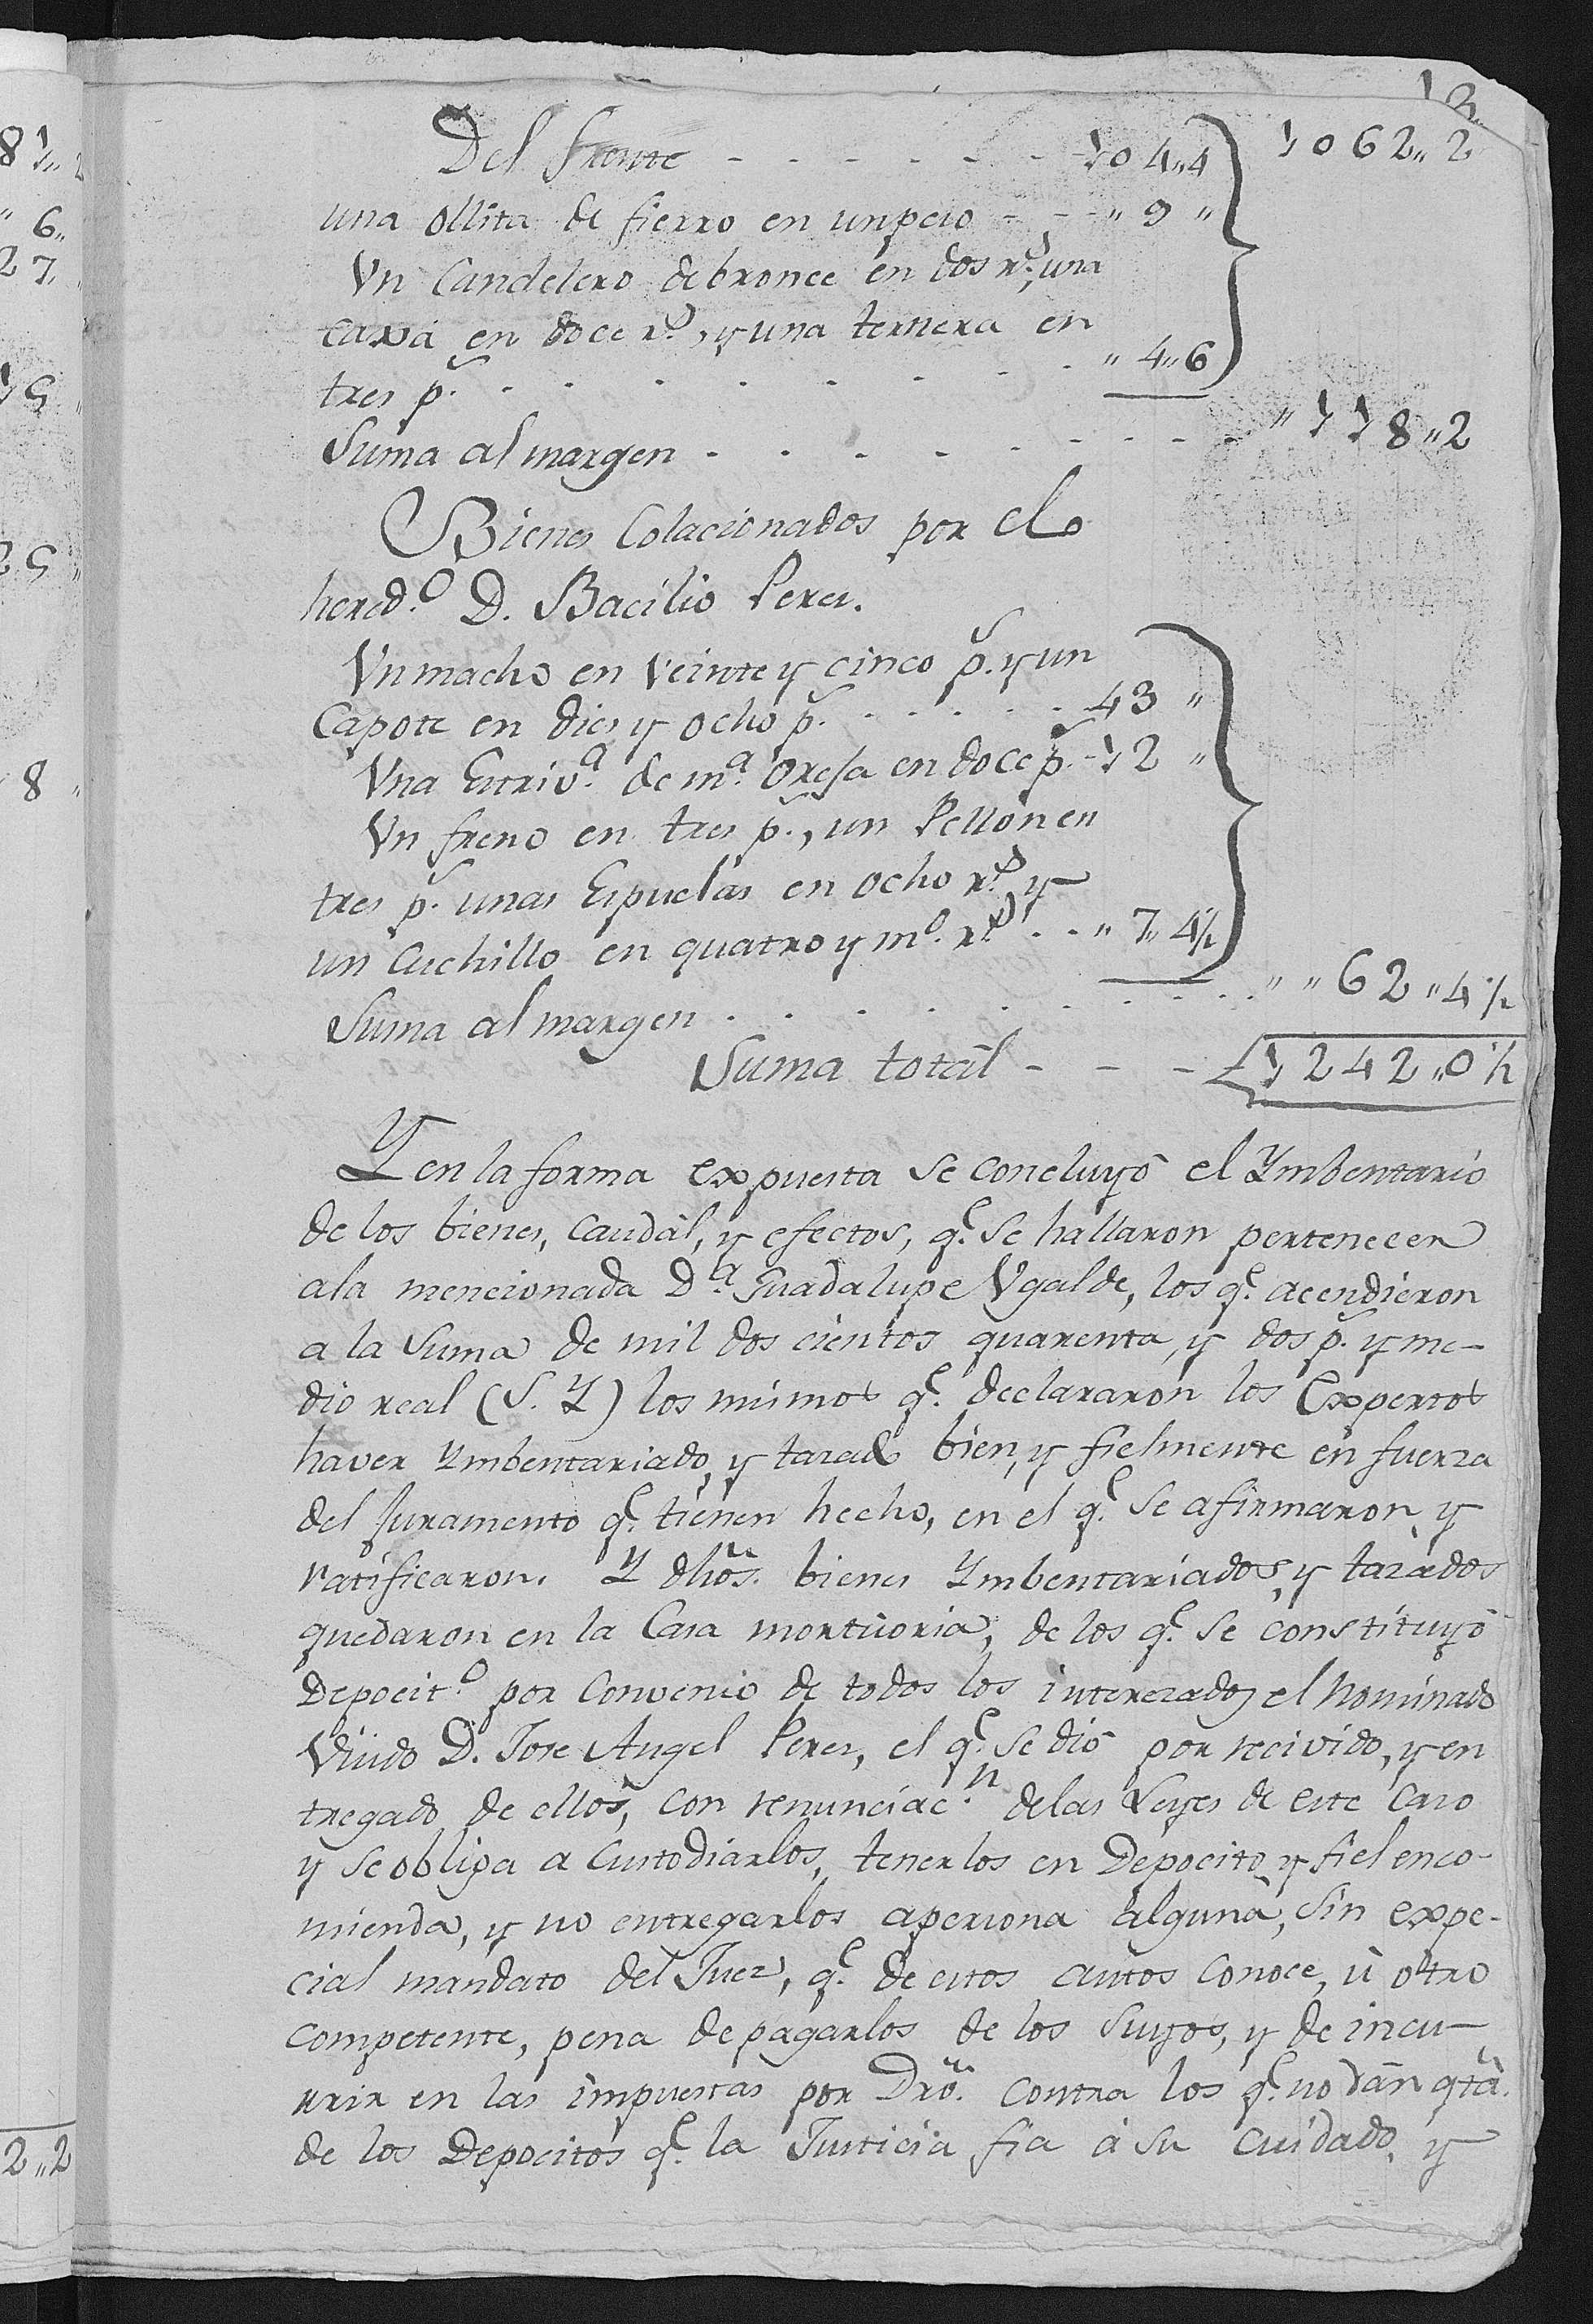 13
Del frente - - - - - - 104,,4 1062,,2
una ollita de fierro en un peso - - - ,, 9 ,,
Vn Candelero de bronce en dos r.s, una
caxa en doce r.s, y una ternera en
tres p.s . . . . . . . . . ,, 4,,6
Suma al margen . . . . - - - - ,, 118,,2
Bienes Colacionados por el
hered.o D. Bacilio Peres.
Vn macho en Veinte y cinco p.s y un
Capote en dies y ocho p.s . . . . . . 43 ,,
Vna Estriv.a de m.a Oresa en doce p.s - 12 ,,
Vn freno en tres p.s, un Pellon en
tres p.s unas Espuelas en ocho r.s, y
un Cuchillo en quatro y m.o r.s . . ,, 7,, 4½
Suma al margen . . . . . . . . . ,, ,, 62 ,, 4½
Suma totál - - - 1242,,0½
Y en la forma expuesta se concluyó el Ymbentario
de los bienes, caudál, y efectos, q.e se hallaron pertenecer
a la mencionada D.a Guadalupe Vgalde, los q.e acendieron
a la Suma de mil dos cientos quarenta, y dos p.s y me-
dio real (S. Y) los mismos q.e declararon los Expertos
haver Ymbentariado, y tazado bien, y fielmente en fuerza
del Juramento q.e tienen hecho, en el q.e se afirmaron, y
ratificaron. Y dhõs. bienes Ymbentariados, y tazados
quedaron en la Casa mortuoria, de los q.e se constituyó
Depocit.o por Convenio de todos los interezados el nominado
Viudo D. Jose Angel Peres, el q.e se dió por recivido, y en
tregado de ellos, con renunciac.n de las Leyes de este caso
y se obliga a Custodiarlos, tenerlos en Depocito, y fiel enco-
mienda, y no entregarlos a persona alguna, sin expe-
cial mandato del Juez, q.e de estos autos conoce, ù otro
competente, pena de pagarlos de los suyos, y de incu-
rrir en las impuestas por Drõ. contra los q.e no dan qtã.
de los Depocitos q.e la Justicia fia á su cuidado, y